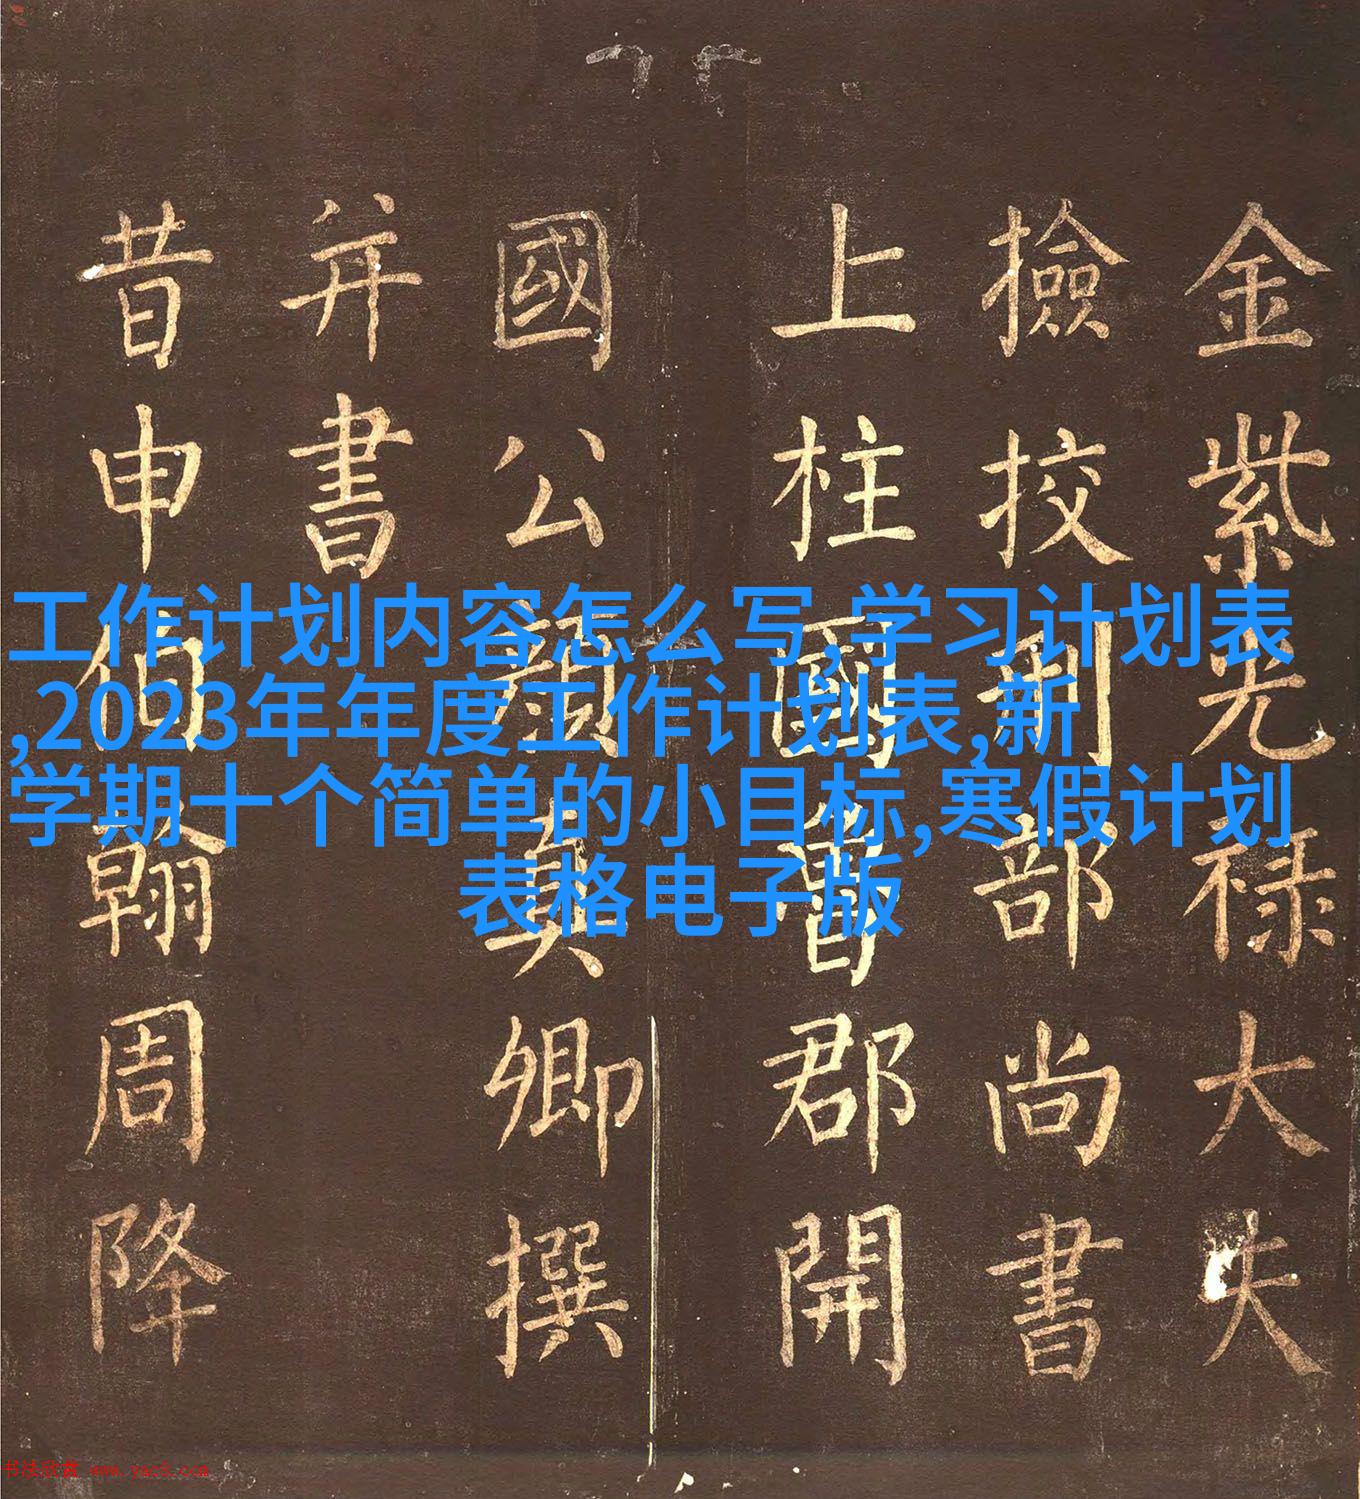 金紫光禄大夫
撿挍刑部尚書
上柱國魯郡開
國公顔真卿撰
并書
昔申伯翰周降
工作计划内容怎么写,学习计划表
,2023年年度工作计划表,新
学期十个简单的小目标,寒假计划
表格电子版
书法欣赏 www.yac8.com